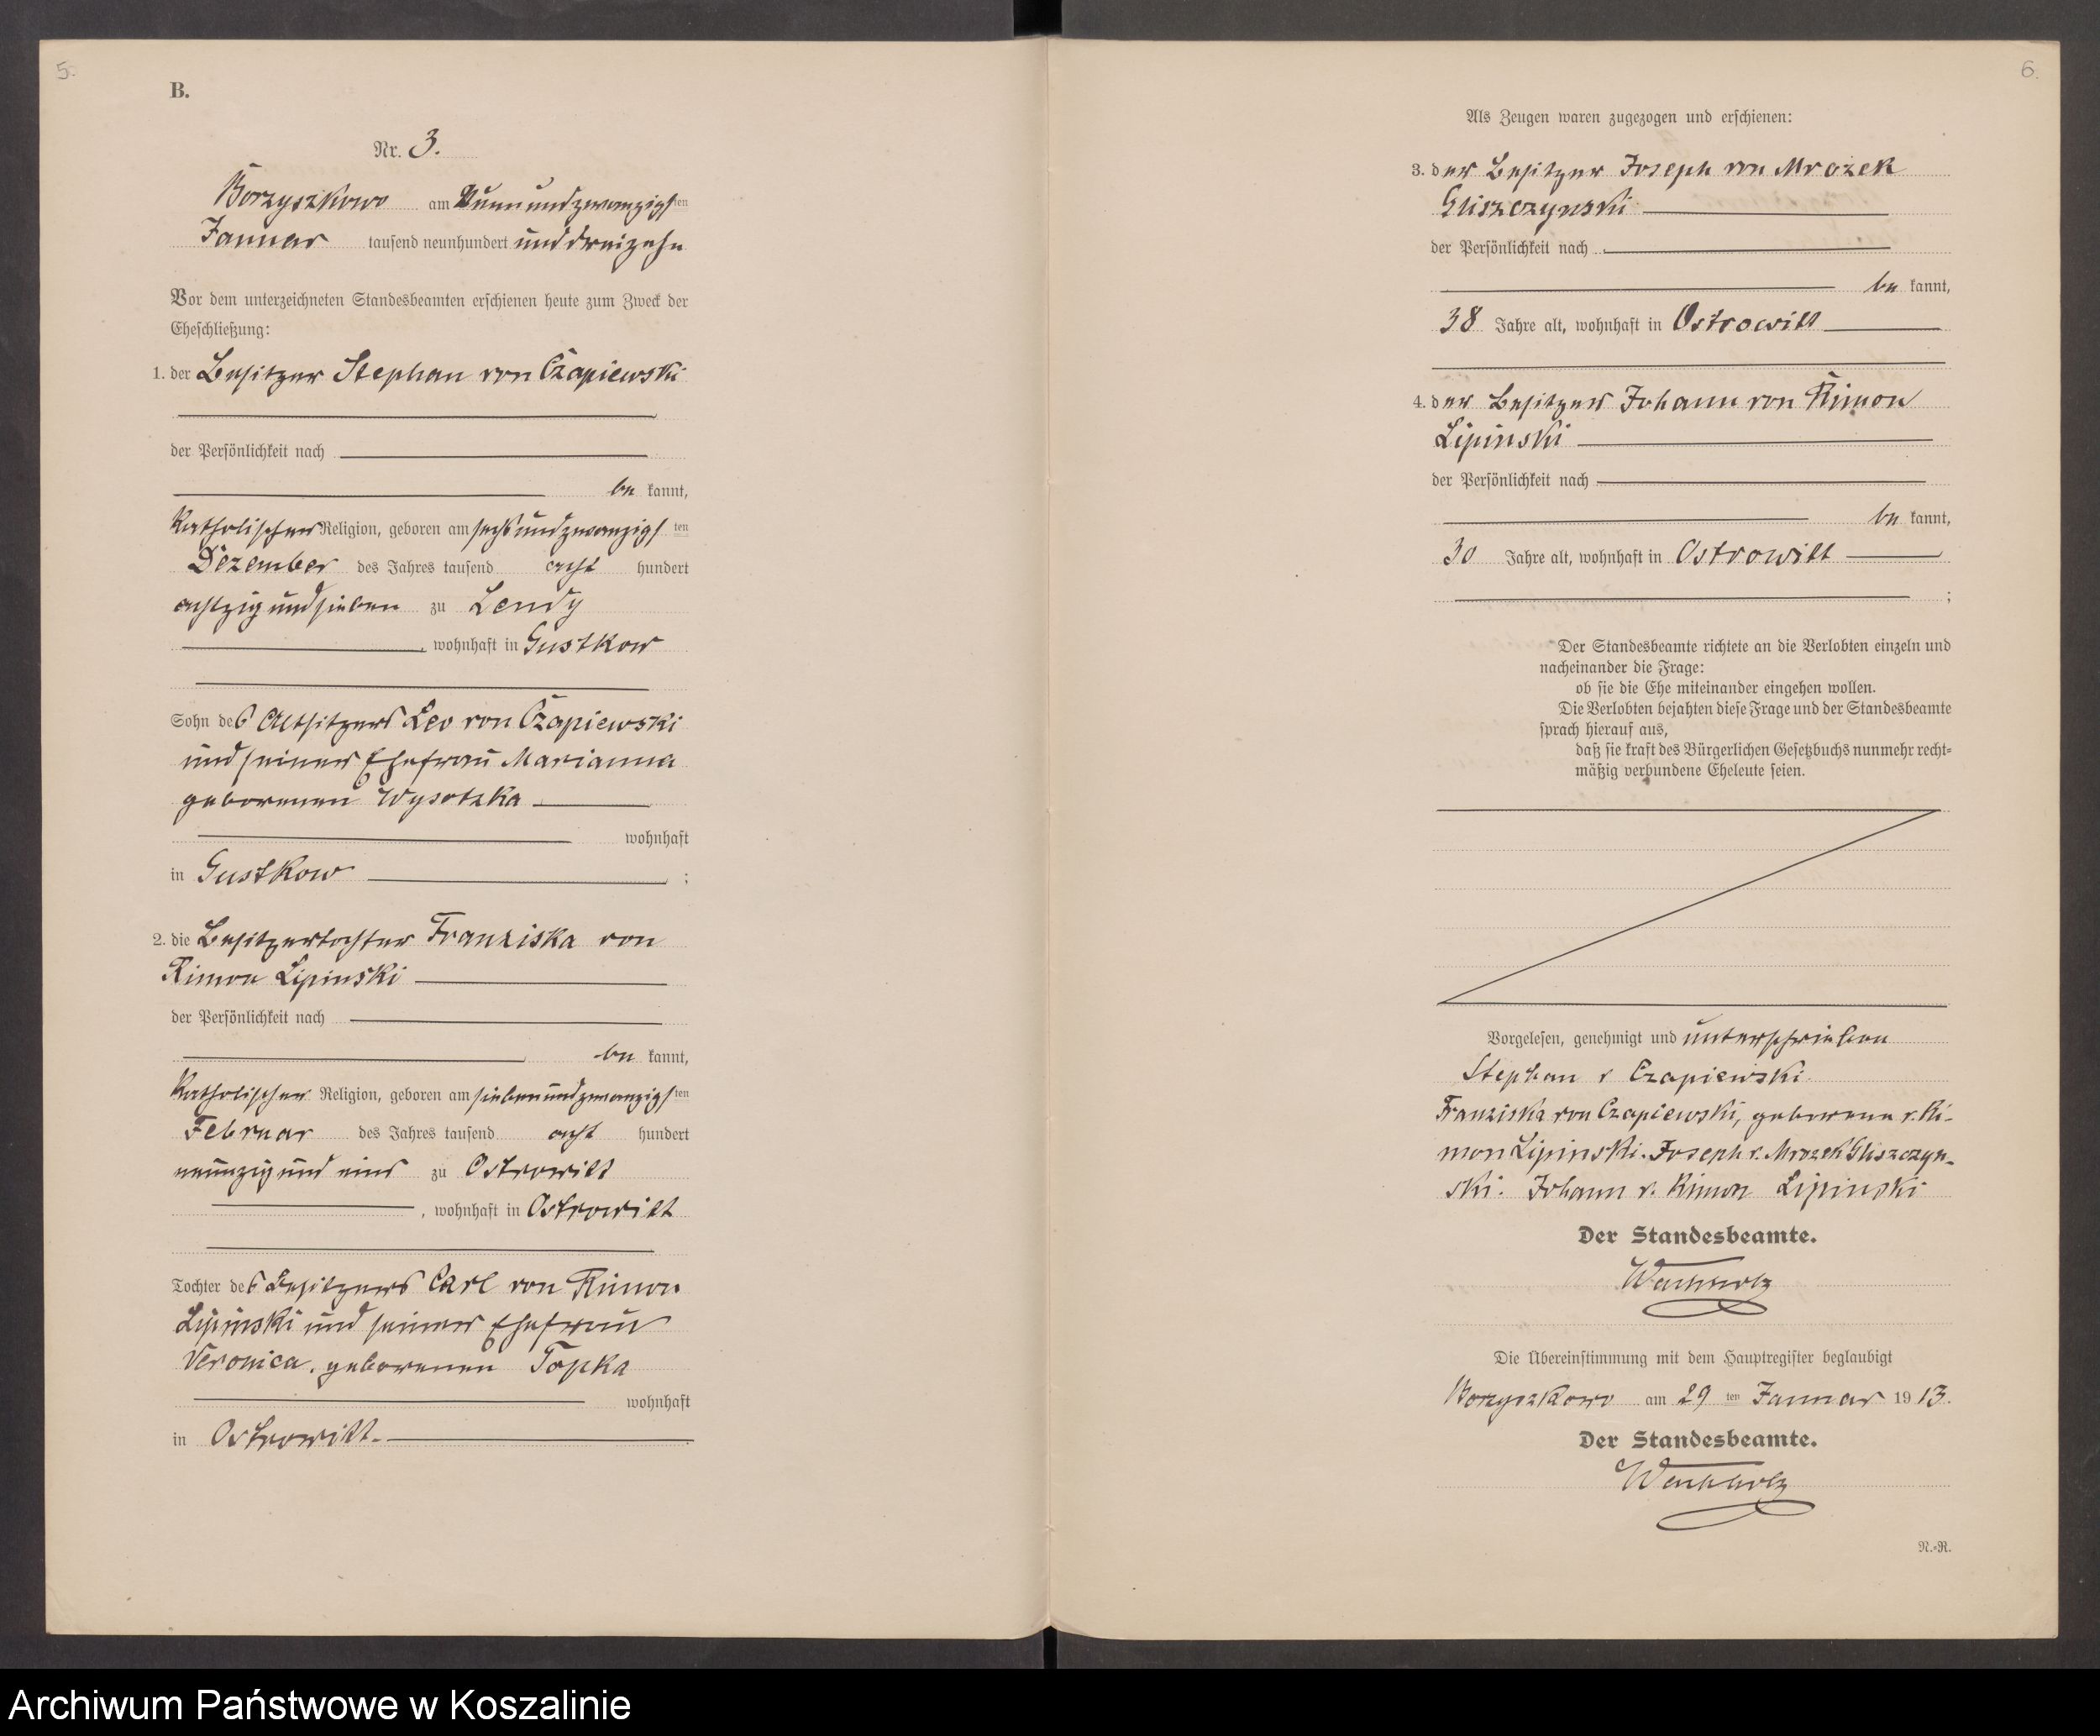 5.
B.
Nr. 3.
Borzyszkowo am Neunundzwanzigsten
Januar tausend neunhundert und dreizehn
Vor dem unterzeichneten Standesbeamten erschienen heute zum Zweck der
Eheschließung:
1. der Besitzer Stephan von Czapiewski
der Persönlichkeit nach
be kannt,
katholischer Religion, geboren am sechsundzwanzigsten
Dezember des Jahres tausend acht hundert
achtzig und sieben zu Lendy
, wohnhaft in Gustkow
Sohn des Altsitzers Leo von Czapiewski
und seiner Ehefrau Marianna
geborenen Wysotzka
wohnhaft
in Gustkow ;
2. die Besitzertochter Franziska von
Rimon Lipinski
der Persönlichkeit nach
be kannt,
katholischer Religion, geboren am siebenundzwanzigsten
Februar des Jahres tausend acht hundert
neunzig und eins zu Ostrowitt
, wohnhaft in Ostrowitt
Tochter des Besitzers Carl von Rimon
Lipinski und seiner Ehefrau
Veronica, geborenen Topka
wohnhaft
in Ostrowitt.
6.
Als Zeugen waren zugezogen und erschienen:
3. der Besitzer Joseph von Mrozek
Gliszczynski
der Persönlichkeit nach
be kannt,
38 Jahre alt, wohnhaft in Ostrowitt
4. der Besitzer Johann von Rimon
Lipinski
der Persönlichkeit nach
be kannt,
30 Jahre alt, wohnhaft in Ostrowitt
;
Der Standesbeamte richtete an die Verlobten einzeln und
nacheinander die Frage:
ob sie die Ehe miteinander eingehen wollen.
Die Verlobten bejahten diese Frage und der Standesbeamte
sprach hierauf aus,
daß sie kraft des Bürgerlichen Gesetzbuchs nunmehr recht-
mäßig verbundene Eheleute seien.
Vorgelesen, genehmigt und unterschrieben
Stephan v Czapiewski
Franziska von Czapiewski, geborene v. Ri-
mon Lipinski. Joseph v. Mrozek Gliszczyn-
ski. Johann v. Rimon Lipinski
Der Standesbeamte.
Wachholz
Die Übereinstimmung mit dem Hauptregister beglaubigt
Borzyszkowo am 29 ten Januar 1913.
Der Standesbeamte.
Wachholz
N.-R.
Archiwum Państwowe w Koszalinie